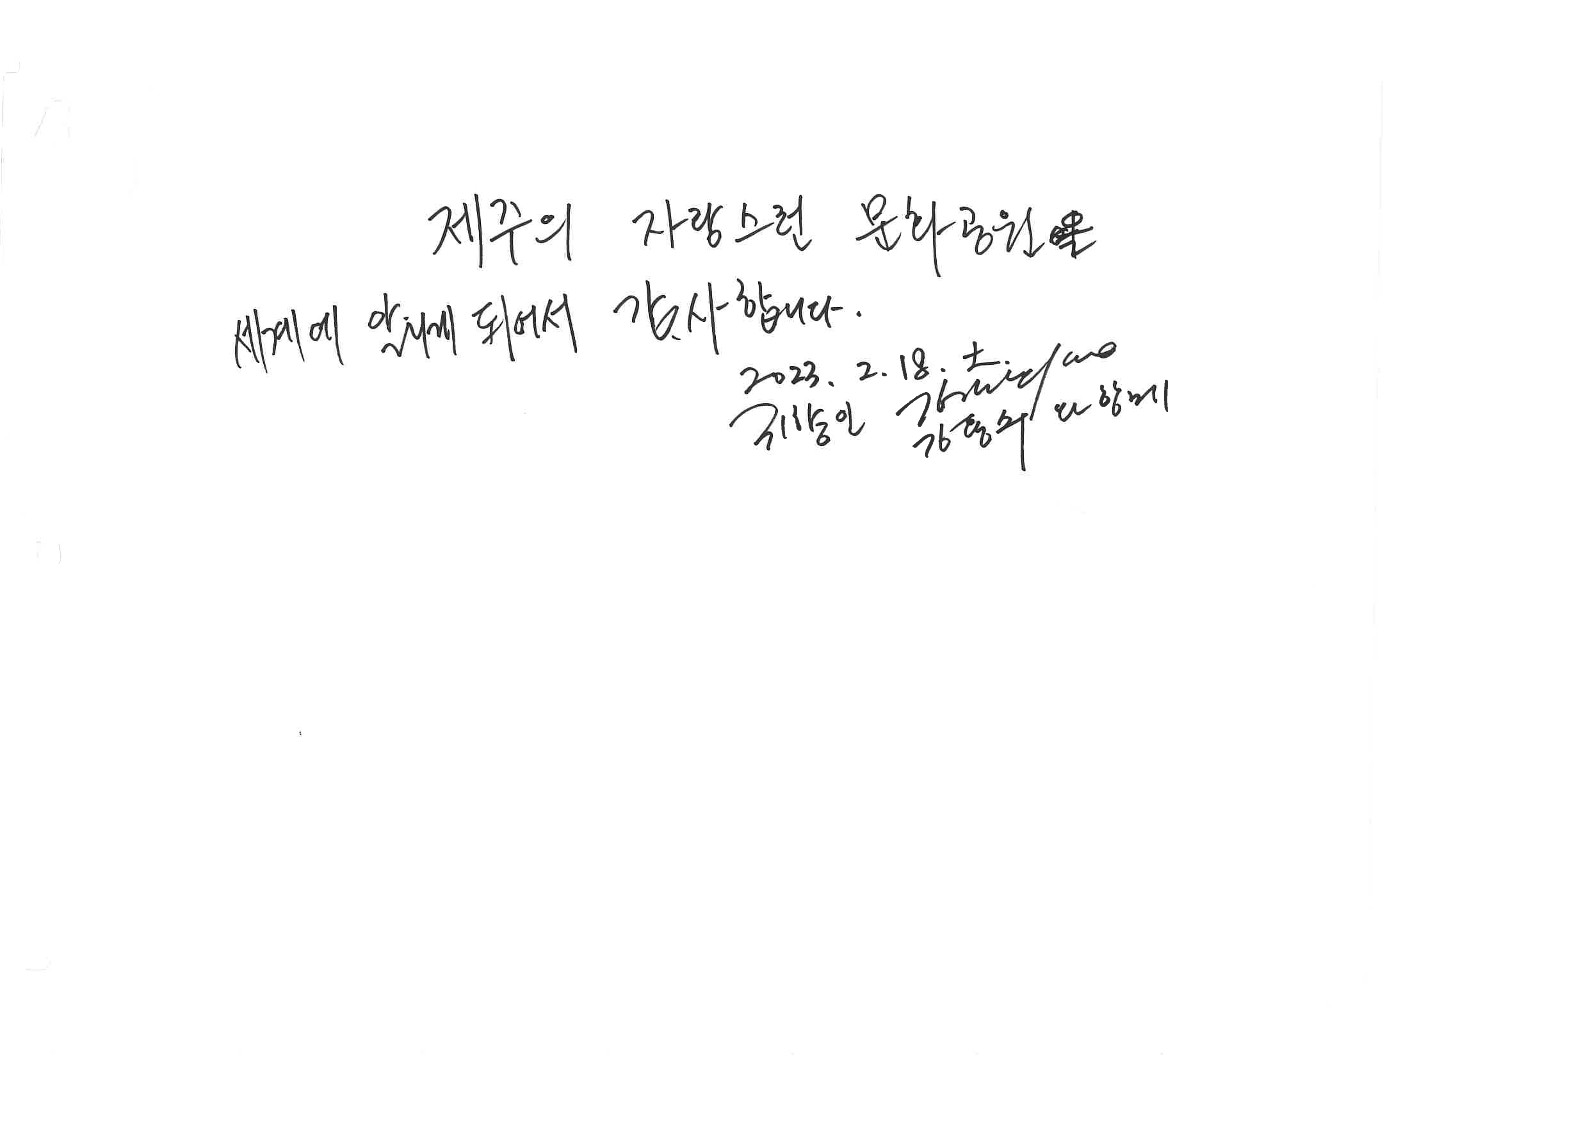 제주의 자랑스런 문화공원을
세계에 알리게 되어서 감사합니다.
2023. 2. 18. 토.